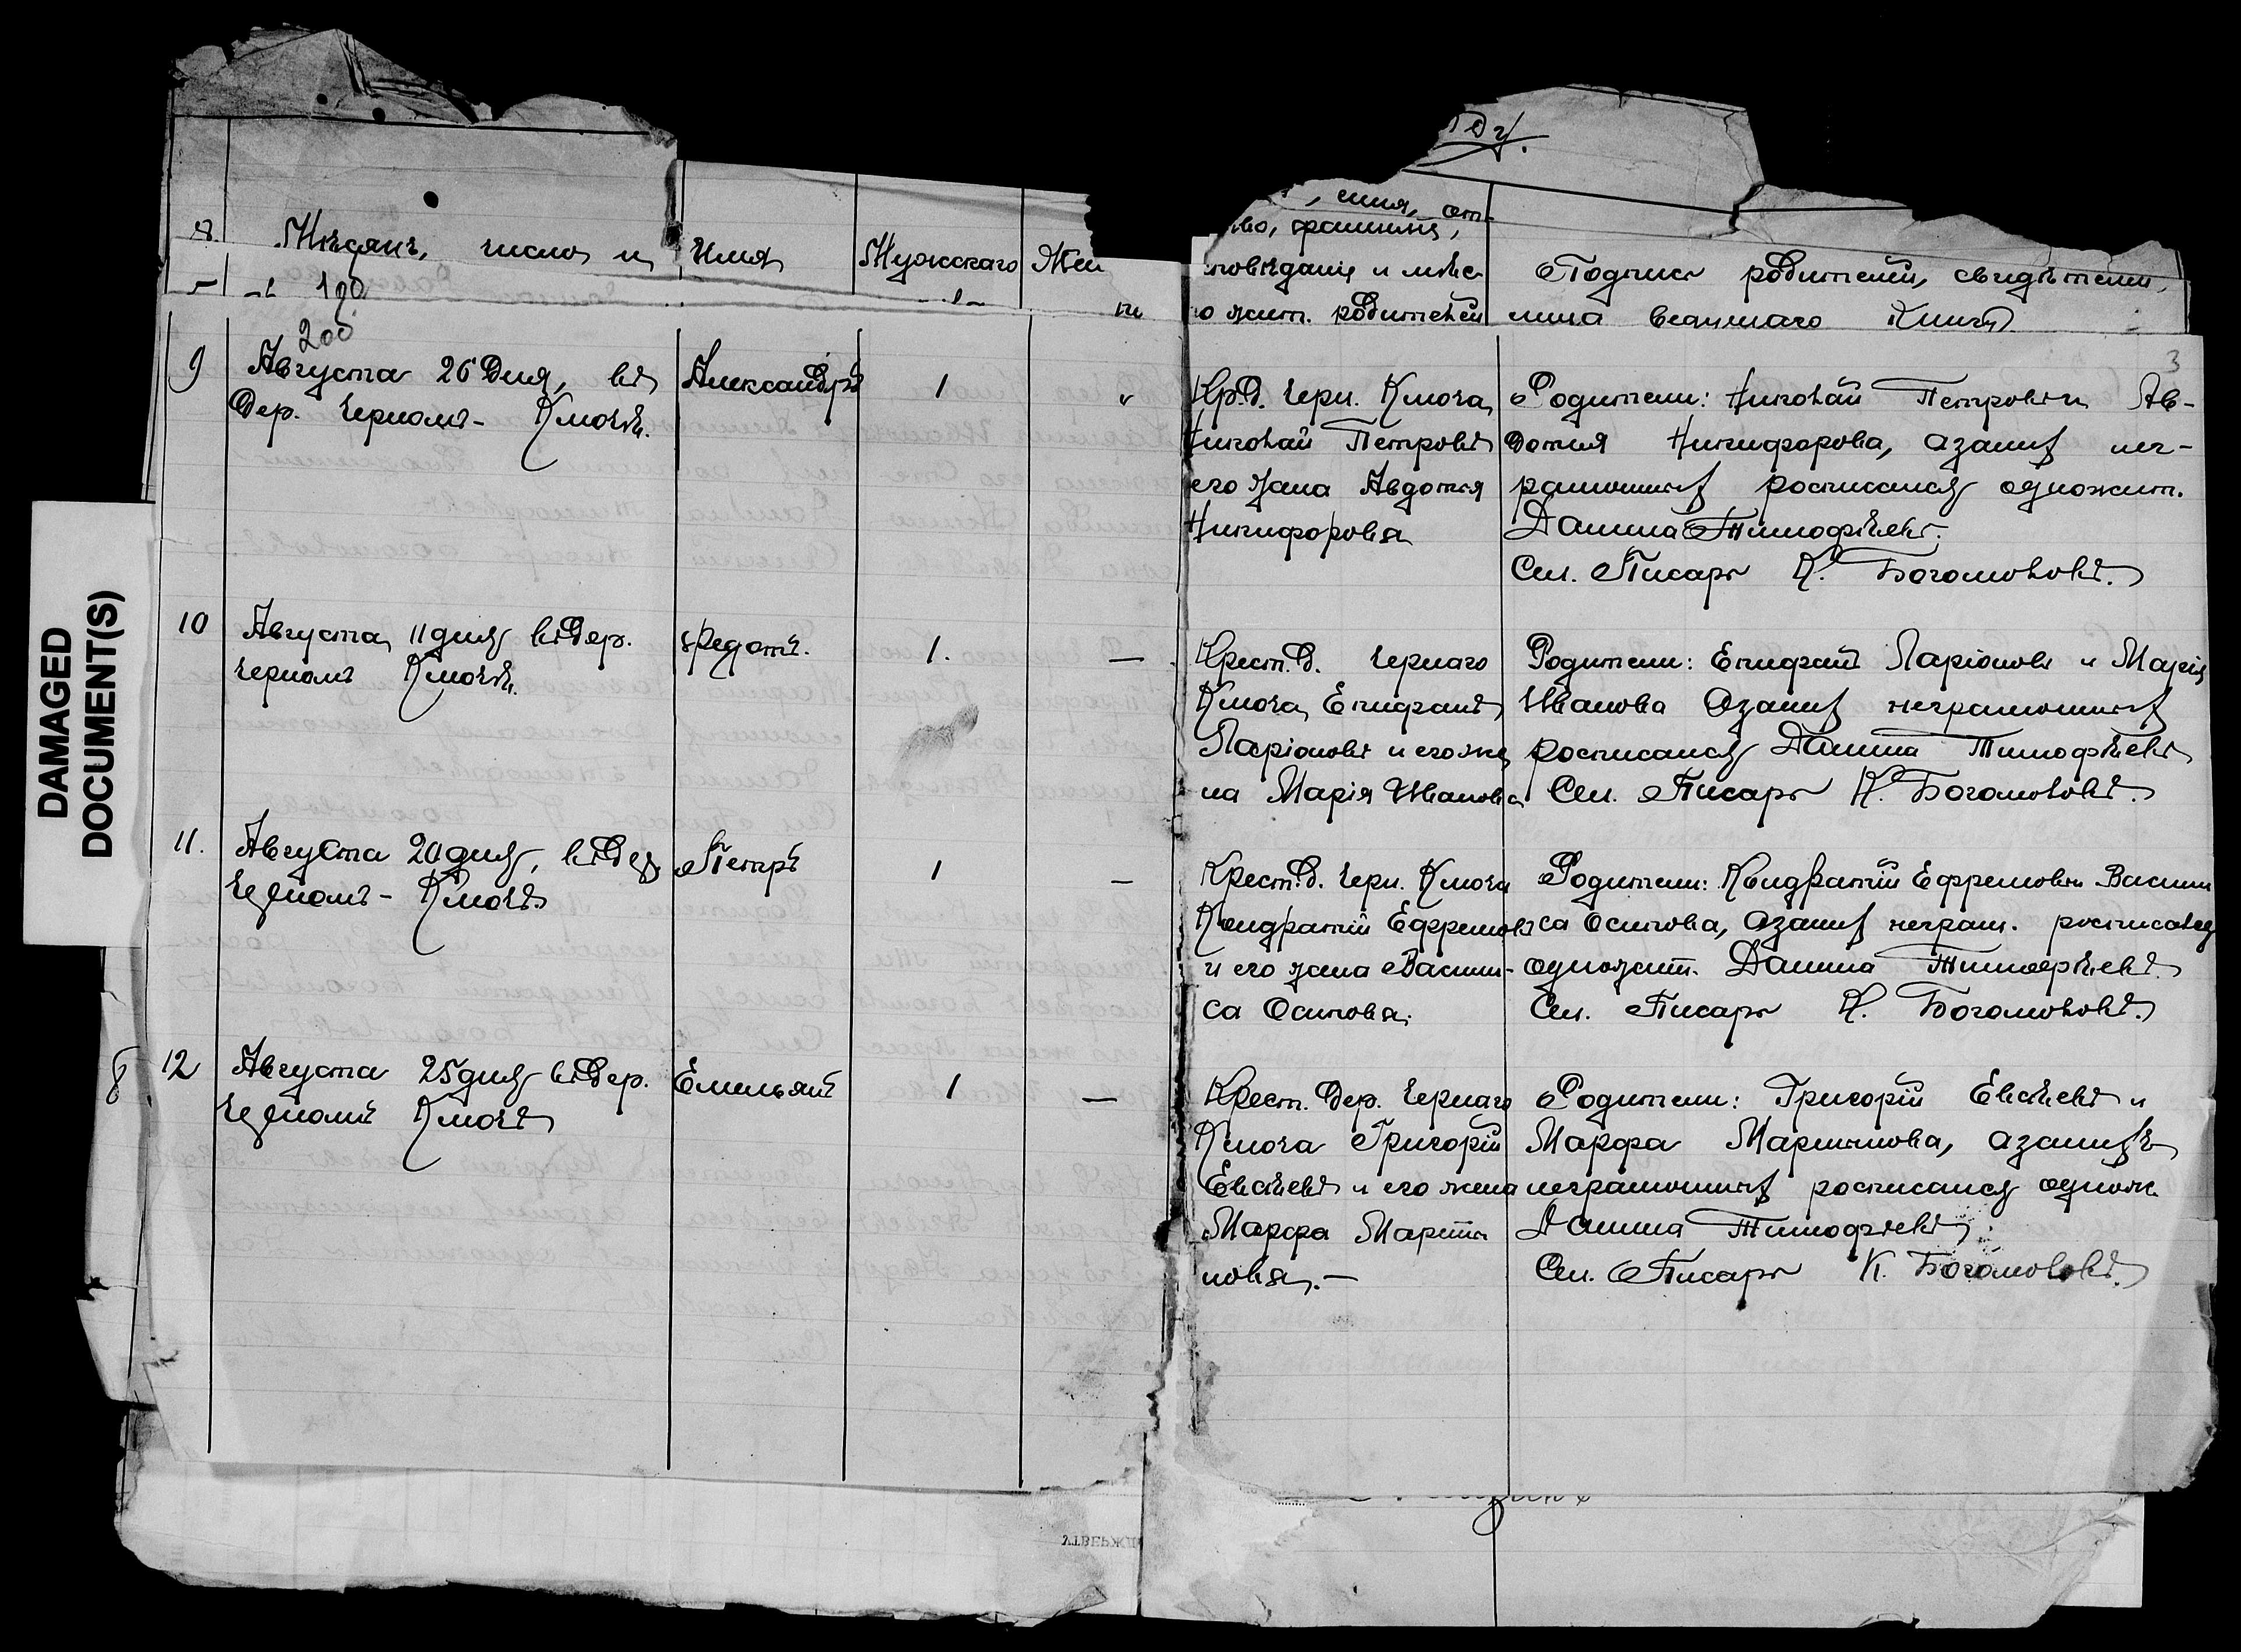 DAMAGED
DOCUMENT(S)
Мѣсяцъ, число и
Имя
Мужескаго
Жен
, имя, от-
во, фамилія,
повѣданіе и мѣс
о жит. родителей
Подписи родителей, свидѣтелей,
лица ведущаго Книгу
3
9
Августа 26 Дня, въ
Дер. Черномъ- Ключѣ.
Александръ
1
"
Кр.д. Черн. Ключа
Николай Петровъ
его жана Авдотия
Никифорова
Родители: Николай Петровъ и Ав-
дотия Никифорова, азанихъ нег-
рамотныхъ росписался одножит.
Данила Тимофѣевъ.
Сел. Писарь К. Богомоловъ.
10
Августа 11 дня въ Дер.
Черномъ Ключѣ.
Федотъ.
1.
—
Крест. д. Чернаго
Ключа Епифанъ
Ларіоновъ и его же
на Марія Иванова
Родители: Епифанъ Ларіоновъ и Марія
Иванова Азанихъ неграмотныхъ
росписался Данила Тимофѣевъ
Сел. Писарь К. Богомоловъ.
11.
Августа 20 дня, въ Дер
Черномъ- Ключѣ
Петръ
1
—
Крест. д. Черн. Ключа
Кондратій Ефремовъ
и его жана Васили-
са Осипова.
Родители: Кондратій Ефремовъ и Васили
са Осипова, Азанихъ неграм. росписался
одножит. Данила Тимофѣевъ.
Сел. Писарь К. Богомоловъ.
12
Августа 25 дня въ Дер.
Черномъ Ключѣ
Емельянъ
1
—
Крест. Дер. Чернаго
Ключа Григорій
Евсѣевъ и его жена
Марфа Марти
нова.—
Родители: Григорій Евсѣевъ и
Марфа Мартинова, азанихъ
неграмотныхъ росписался однож.
Данила Тимофѣевъ
Сел. Писарь К. Богомоловъ.